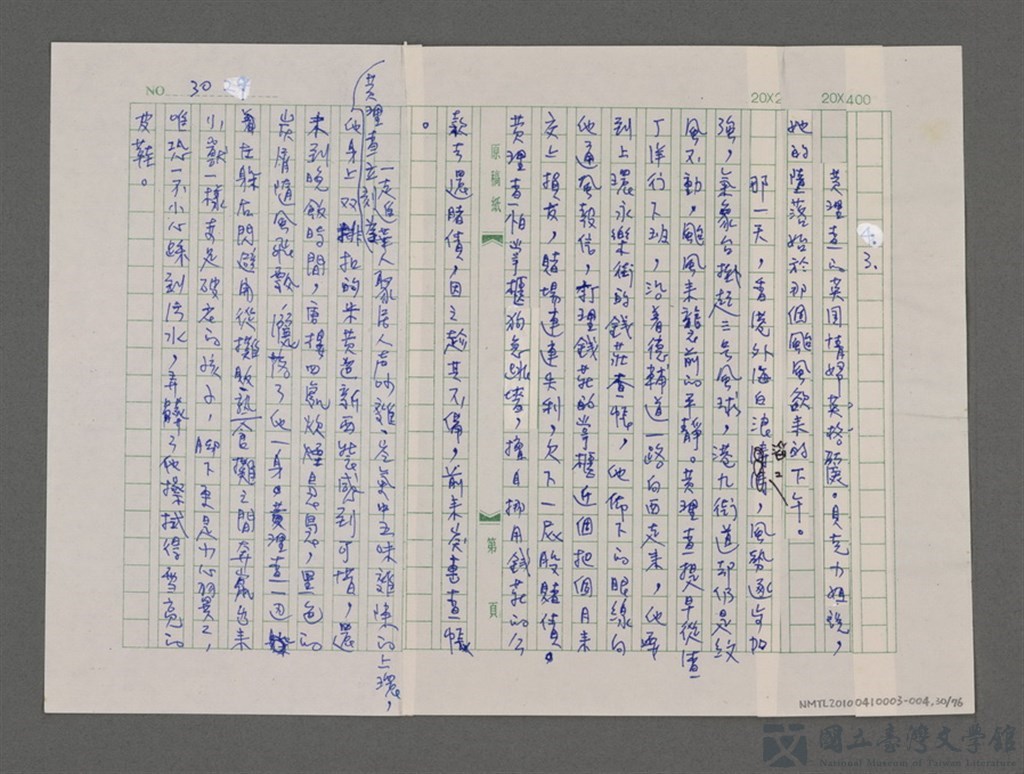 NO 30
20X2
20X400
3.
黃理查的英国情婦英格麗.貝克力姐說，
她的墮落始於那個颱風欲来的下午。
那一天，香港外海白浪滔滔，風勢逐步加
強，氣象台掛起三号風球，港九街道却仍是紋
風不動，颱風来襲前的平靜。黃理查提早從渣
丁洋行下班，沿着德輔道一路向西走来，他要
到上環永樂街的錢莊查帳，他佈下的眼線向
他通風報信，打理錢莊的掌櫃近個把個月来
交上損友，賭場連連失利，欠下一屁股賭債。
黃理查怕掌櫃狗急跳墻，擅自挪用錢莊的公
原稿紙
第 頁
款去還賭債，因之趁其不備，前来突專查帳
。
一走進華人聚居人声吵雜、空氣中五味雜陳的上環，
黃理查立刻為
他身上双排扣的米黃色新西裝感到可惜，還
未到晚飯時間，唐樓四處炊煙裊裊，黑色的
炭屑隨風飛飄，灑落了他一身。黃理查一边
着在躲右閃避開從攤販熟食攤之間奔竄出来
小獸一樣衣足破在的孩子，脚下更是小心翼々，
唯恐一不小心踩到污水，弄髒了他擦拭得雪亮的
皮鞋。
NMTL20100410003-004,30/76
國立臺灣文學館
National Museum of Taiwan Literature